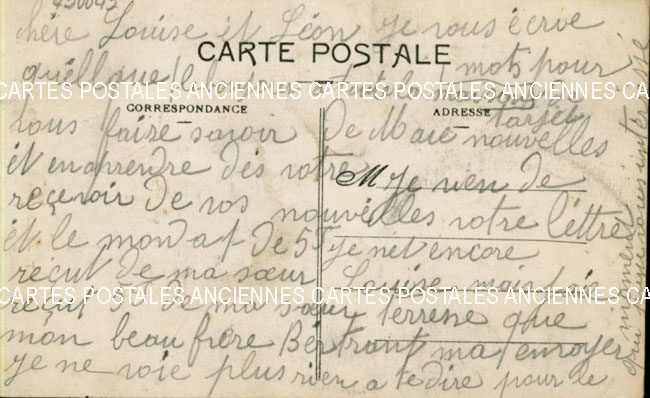 430043
chère Louise et Léon je vous écrive
CARTE POSTALE
quellque mots pour
CARTES POSTALES ANCIENNES CARTES POSTALES ANCIENNES CARTES POSTALES
CORRESPONDANCE
ADRESSE
tarjet
vous faire savoir de Maie nouvelles
et en aprendre des votre
M je vien de
reçevoir de vos nouvelles votre lèttre
et le mondat de 5 f je nèt encore
recut de ma sœur Louise mais
CARTES POSTALES ANCIENNES CARTES POSTALES ANCIENNES CARTES POSTALES
reçut 5 f de ma sœur terrese que
mon beau frère Bertrant ma envoyer
je ne voie plus rien a te dire pour le